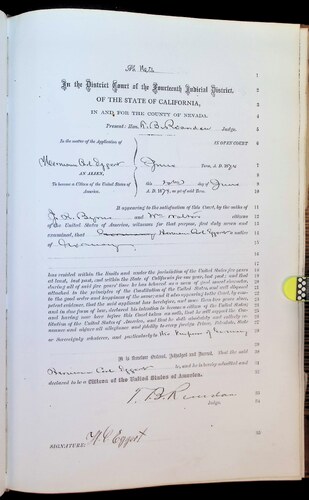 In the District Court of the Fourteenth Judicial District,
OF THE STATE OF CALIFORNIA,
IN AND FOR THE COUNTY OF NEVADA.
Present: Hon. T. B. Reardan Judge.
In the matter of the Application of
IN OPEN COURT
Hermann Eggert
June Term, A. D. 187
AN ALIEN,
To become a Citizen of the United States of America.
this day of June A. D. 187
It appearing to the satisfaction of this Court, by the oaths of
Byrne and Wm citizens
of the United States of America, witnesses for that purpose, first duly sworn and
examined, that Hermann Eggert native
of Germany
has resided within the limits and under the jurisdiction of the United States five years
at least, last past, and within the State of California for one year, last past; and that
during all of said five years' time he has behaved as a man of good moral character,
attached to the principles of the Constitution of the United States, and well disposed
to the good order and happiness of the same; and it also appearing to the Court, by competent evidence, that the said applicant has heretofore, and more than two years since,
and in due form of law, declared his intention to become a citizen of the United States,
and having now here before this Court taken an oath, that he will support the Constitution of the United States of America, and that he doth absolutely and entirely renounce and abjure all allegiance and fidelity to every foreign Prince, Potentate, State
or Sovereignty whatever, and particularly to the Emperor of Germany
It is therefore Ordered, Adjudged and Decreed, That the said
Hermann Eggert be and he is hereby admitted and
declared to be a Citizen of the United States of America.
T. B. Reardan
Judge.
SIGNATURE: Eggert
1
2
3
4
5
6
7
8
9
10
11
12
13
14
15